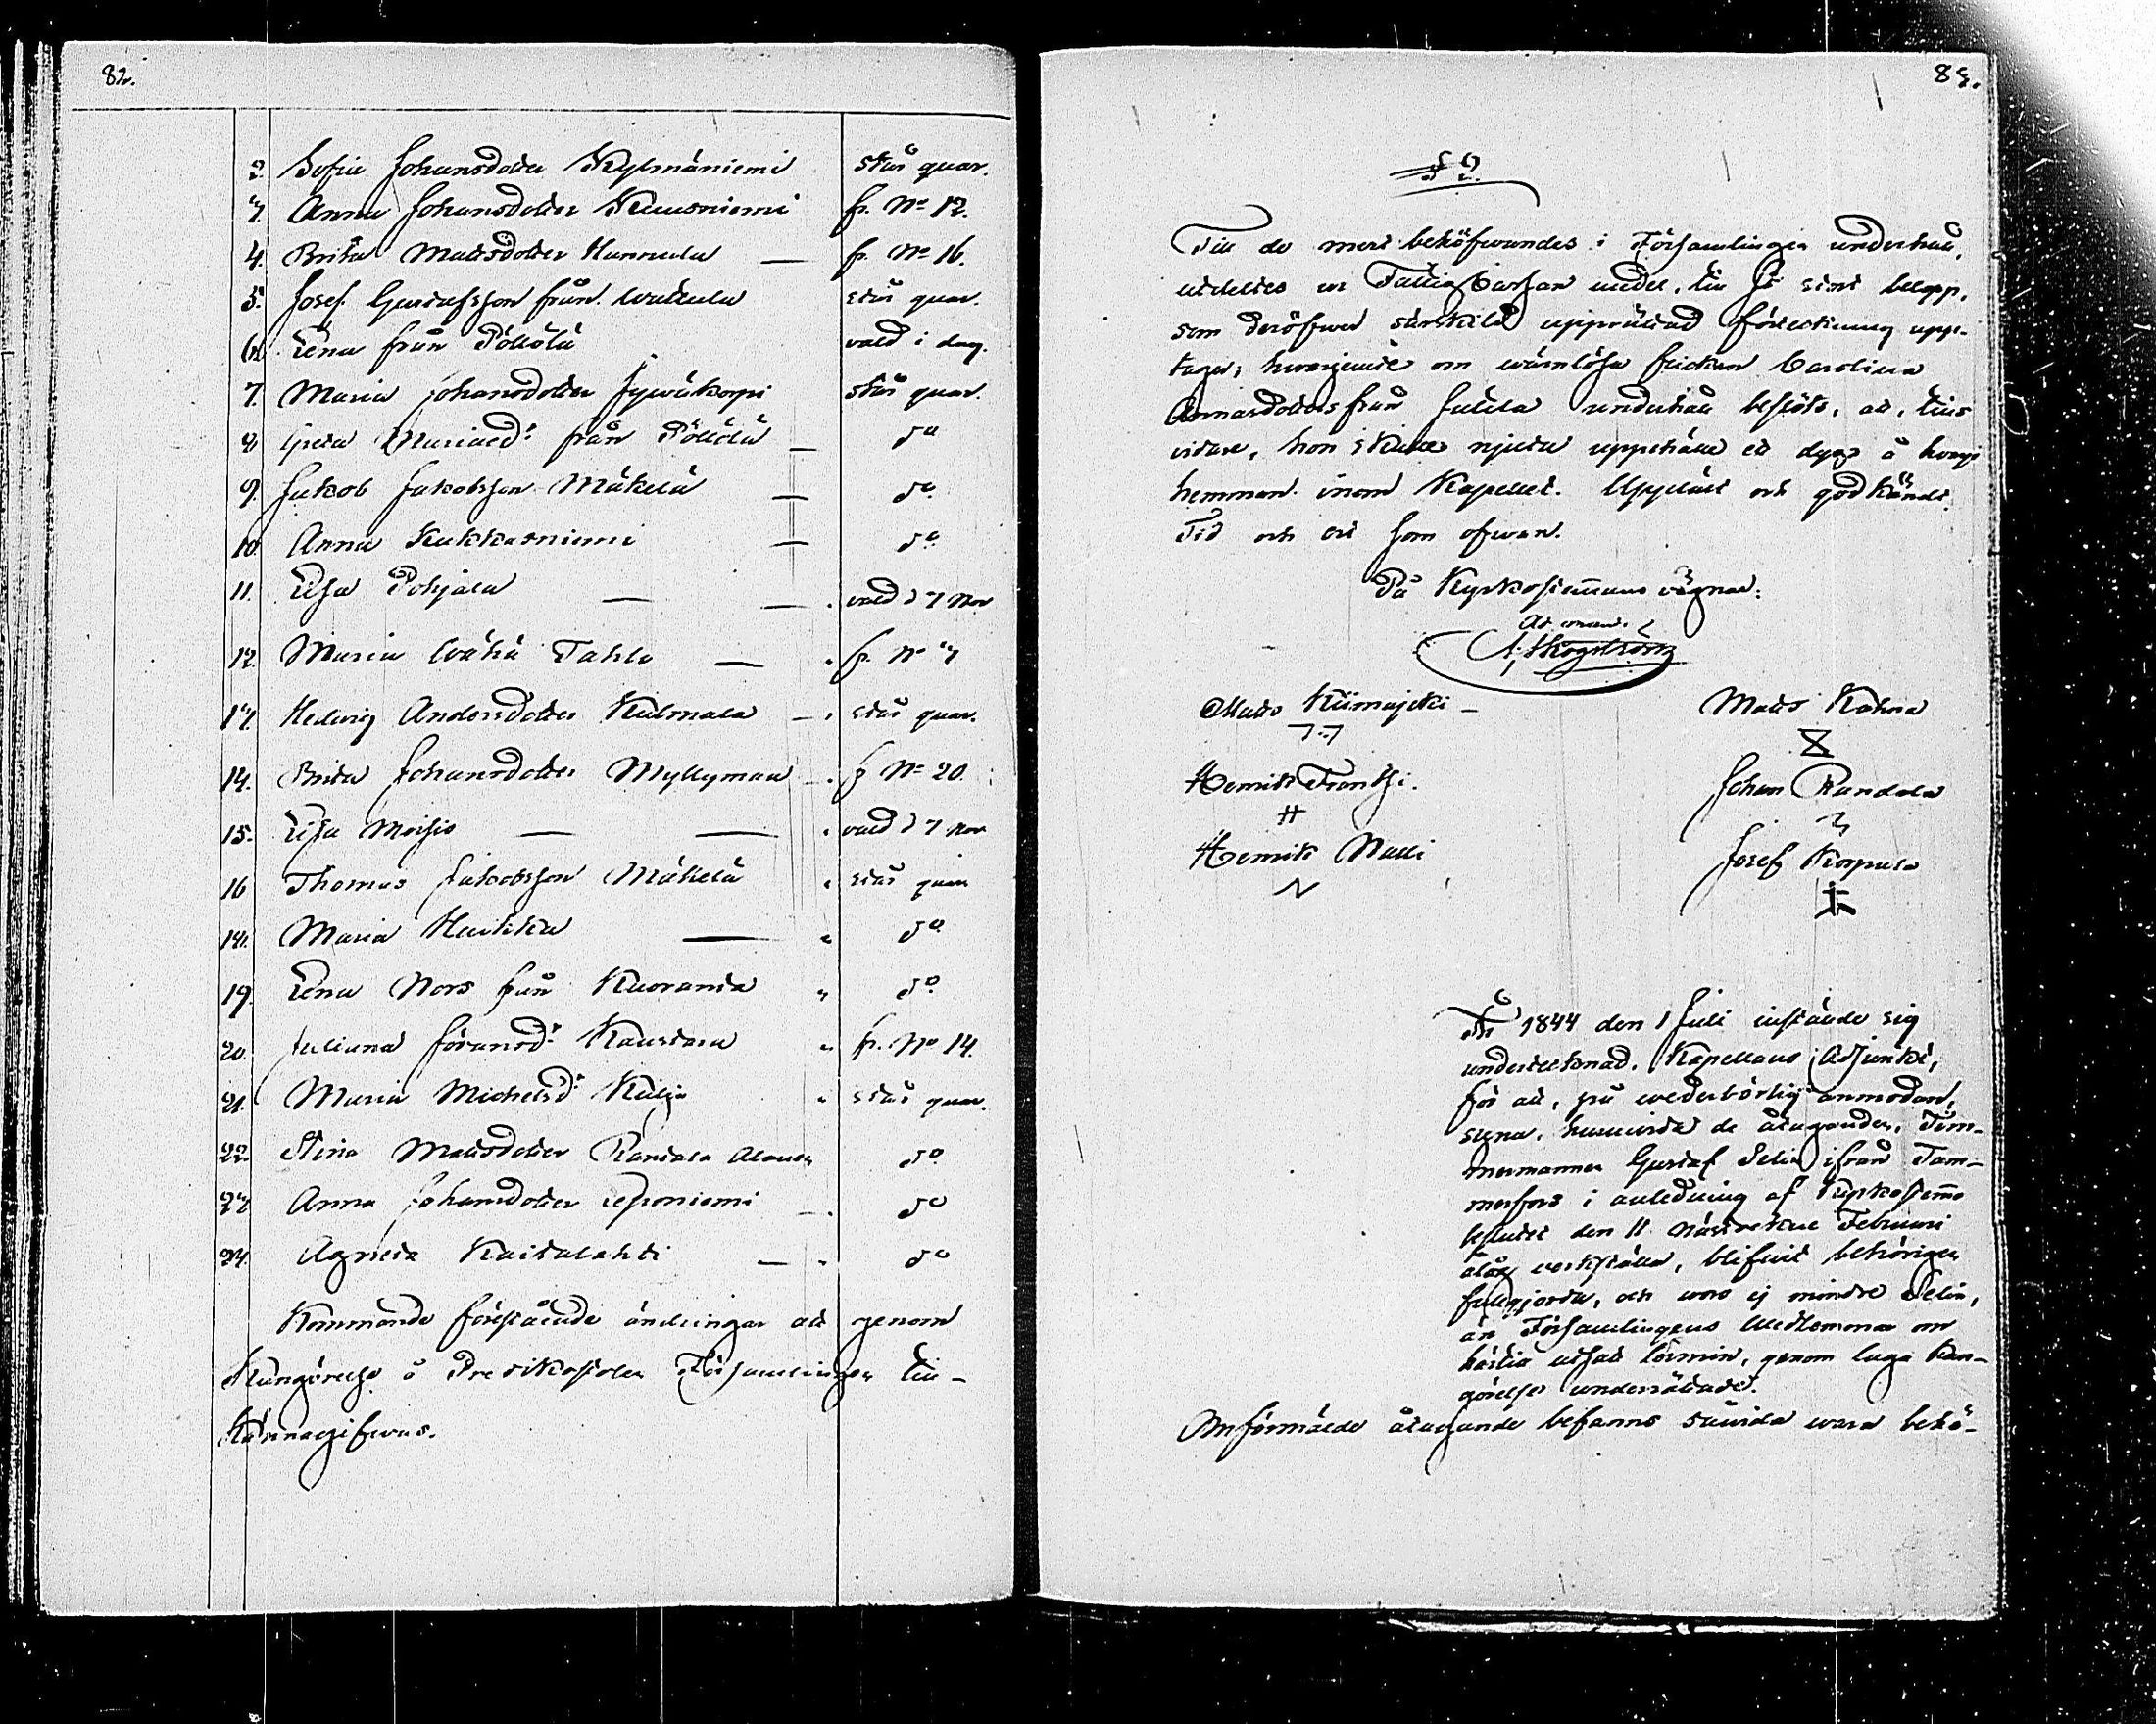 82.
2. Sofia Johansdotter Kylmäniemi står quar.
3. Anna Johansdotter Kuusniemi fr. No 12.
4. Brita Mattsdotter Hannula — fr. No 16.
5. Josef Gustafsson från Wattula står quar.
6. Lena från Pöllölä vald i dag.
7. Maria Johansdotter Jywäkorpi står quar.
8. Greta Mariaed:r från Pöllölä — do
9. Jakob Jakobsson Mäkelä — do
10. Anna Kukkasniemi — do
11. Lisa Pohjala — — vald d 7 Nov
12. Maria Wähä Tahlo — fr. No 3
13. Hedvig Andersdotter Kulmala — står quar.
14. Brita Johansdotter Myllymaa fr No 20.
15. Lisa Moisio — — vald d 7 Nov
16 Thomas Jakobsson Mäkelä står quar
18. Maria Huikka — do
19. Lena Nors från Kuoranta " do
20. Juliana Göransd:r Kaustara " fr. No 14.
21. Maria Michelsd:r Kulja " står quar.
22. Stina Mattsdotter Rantala do
23 Anna Johansdotter Leponiemi do
24. Agneta Kaitalahti — do
Kommande förestående ändringar att genom
Kungörelse å Predikostolen Församlingen till-
kännagifwas.
83.
§ 2.
Till de mest behöfwandes i Församlingen underhåll,
utdeltes ur Fattig Cassan medel, till sitt belopp,
som deröfwer särskild upprättad förteckning upp-
tager; hwarjemte om wärnlösa flickan Carolina
Annasdotters från Juttila underhåll beslöts, att, tills
vidare, hon skulle njuta uppehälle ett dygn å hvarje
hemman inom Kapellet. Uppläst och godkändt.
Tid och ort som ofwan.
På Kyrkostämmans vägnar:
A. Skogström
Matts Kiimajoki — Matts Kahra
Henrik Frantsi. Johan Rundala
Henrik Walli Josef Korpula
År 1844 den 1 Juli inställde sig
undertecknad, Kapellans Adjunkt,
för att, på wederbörlig anmodan,
syna, huruvida de åligganden, Tim-
mermannen Gustaf Selin ifrån Tam-
merfors i anledning af Kyrkostämmo
beslutet den 11 nästwekne Februari
ålåg verkställa, blifvit behörigen
fullgjorda, och woro ej mindre Selin,
än Församlingens Medlemmar om
härtill utsatt termin, genom laga kun-
görelse underrättade.
Omförmälde åliggande befanns såvida wara behö-